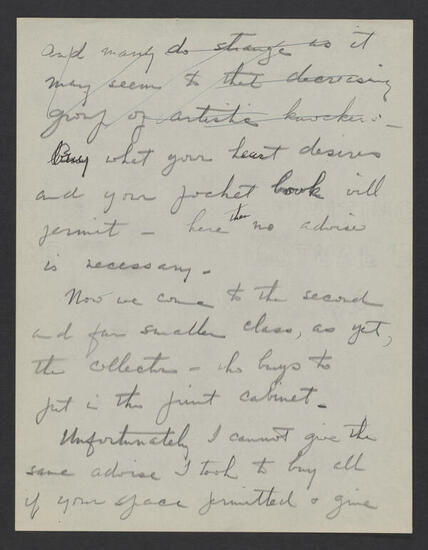 and many do strange as it
may seem to that decreasing
group of artistic knockers -
Buy what your heart desires
and your pocket book will
permit - here then no advise
is necessary -
Now we come to the second
and far smaller class, as yet,
the collector - who buys to
put in the print cabinet -
Unfortunately I cannot give the
same advise I took to buy all
if your space permitted & give